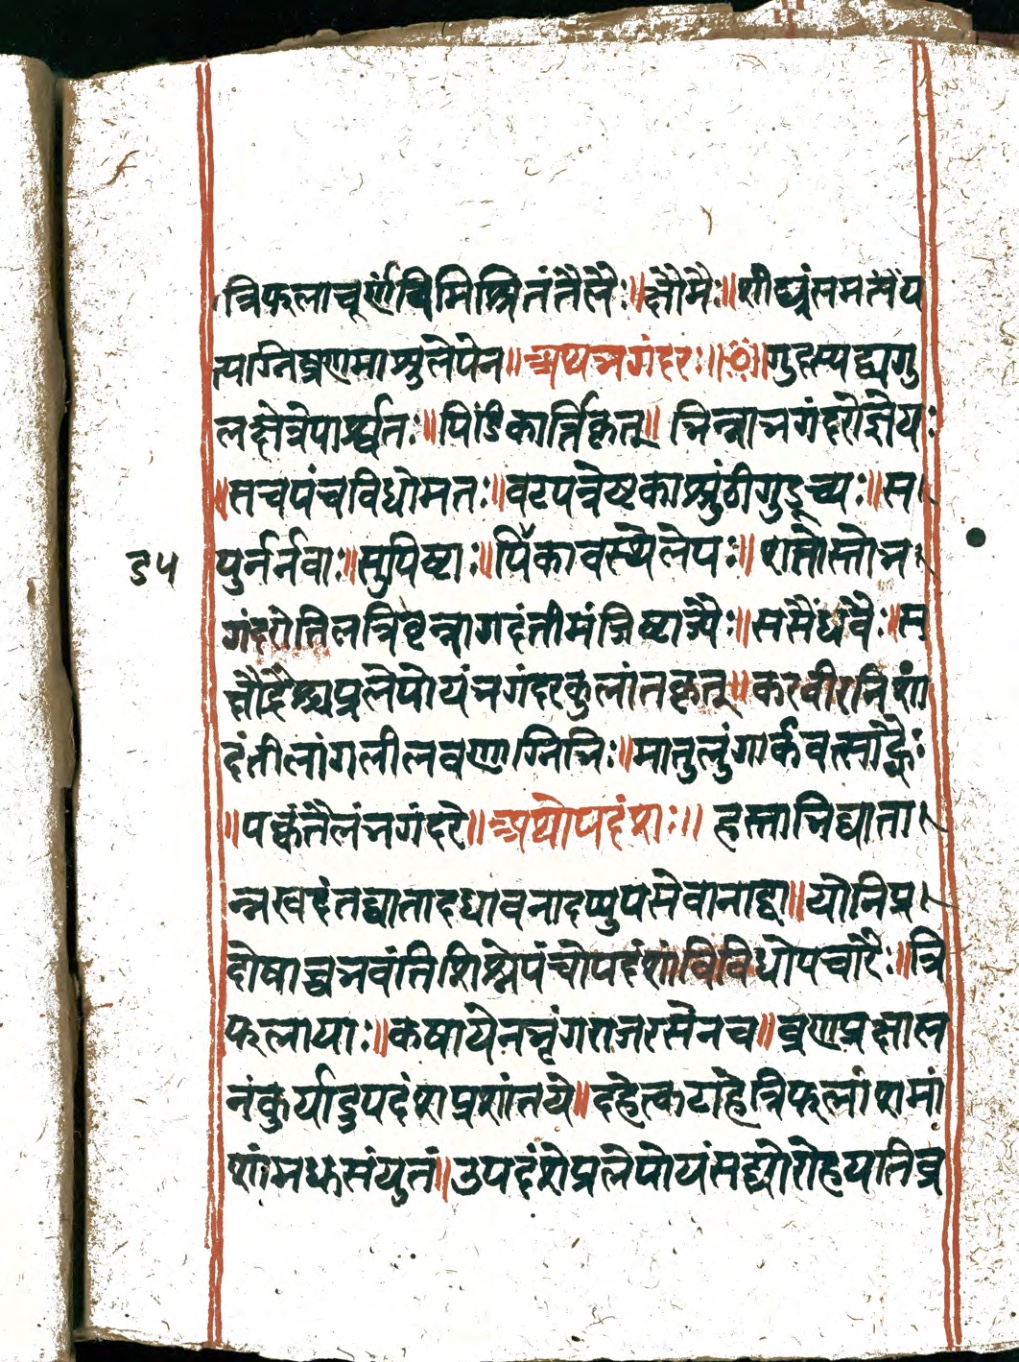 त्रिफलाचूर्णविमिश्रितंतैलैः॥क्षौमैः॥शीघ्रंसमत्वंप
त्यग्निव्रणमाशुलेपेन॥अथभगंदरः॥छ॥गुदस्यद्व्यगु
लक्षेत्रेपार्श्वतः॥पिंडिकार्त्तिकृत्॥भिन्नाभगंदरोज्ञेयः
॥सचपंचविधोमतः॥वटपत्रेष्टकाशुंठीगुडूच्यः॥स
३५ पुर्नर्नवाः॥सुपिष्टाः॥पिंकावस्थैलेपः॥शस्तोस्तोभ
गंदरोतिलत्रिवृन्नागदंतीमंजिष्टाज्यैः॥ससैंधवैः॥स
क्षौद्रैश्चप्रलेपोयंभगंदरकुलांतकृत्॥करवीरनिशां
दंतीलांगलीलवणाग्निभिः॥मातुलुंगार्कवत्साद्वैः
॥पक्वंतैलंभगंदरे॥अथोपदंशः॥हस्ताभिघाता
न्नखदंतघातादधावनादप्युपसेवानाद्वा॥योनिप्र
दोषाच्चभवंतिशिश्नेपंचोपदंशांविविधोपचारैः॥त्रि
फलायाः॥कषायेनभृंगराजरसेनच॥व्रणप्रक्षाल
नंकुर्यादुपदंशप्रशांतये॥दहेत्कटाहेत्रिफलांशमां
शांमधुसंयुतं॥उपदंशेप्रलेपोयंसद्योरोहयतिव्र